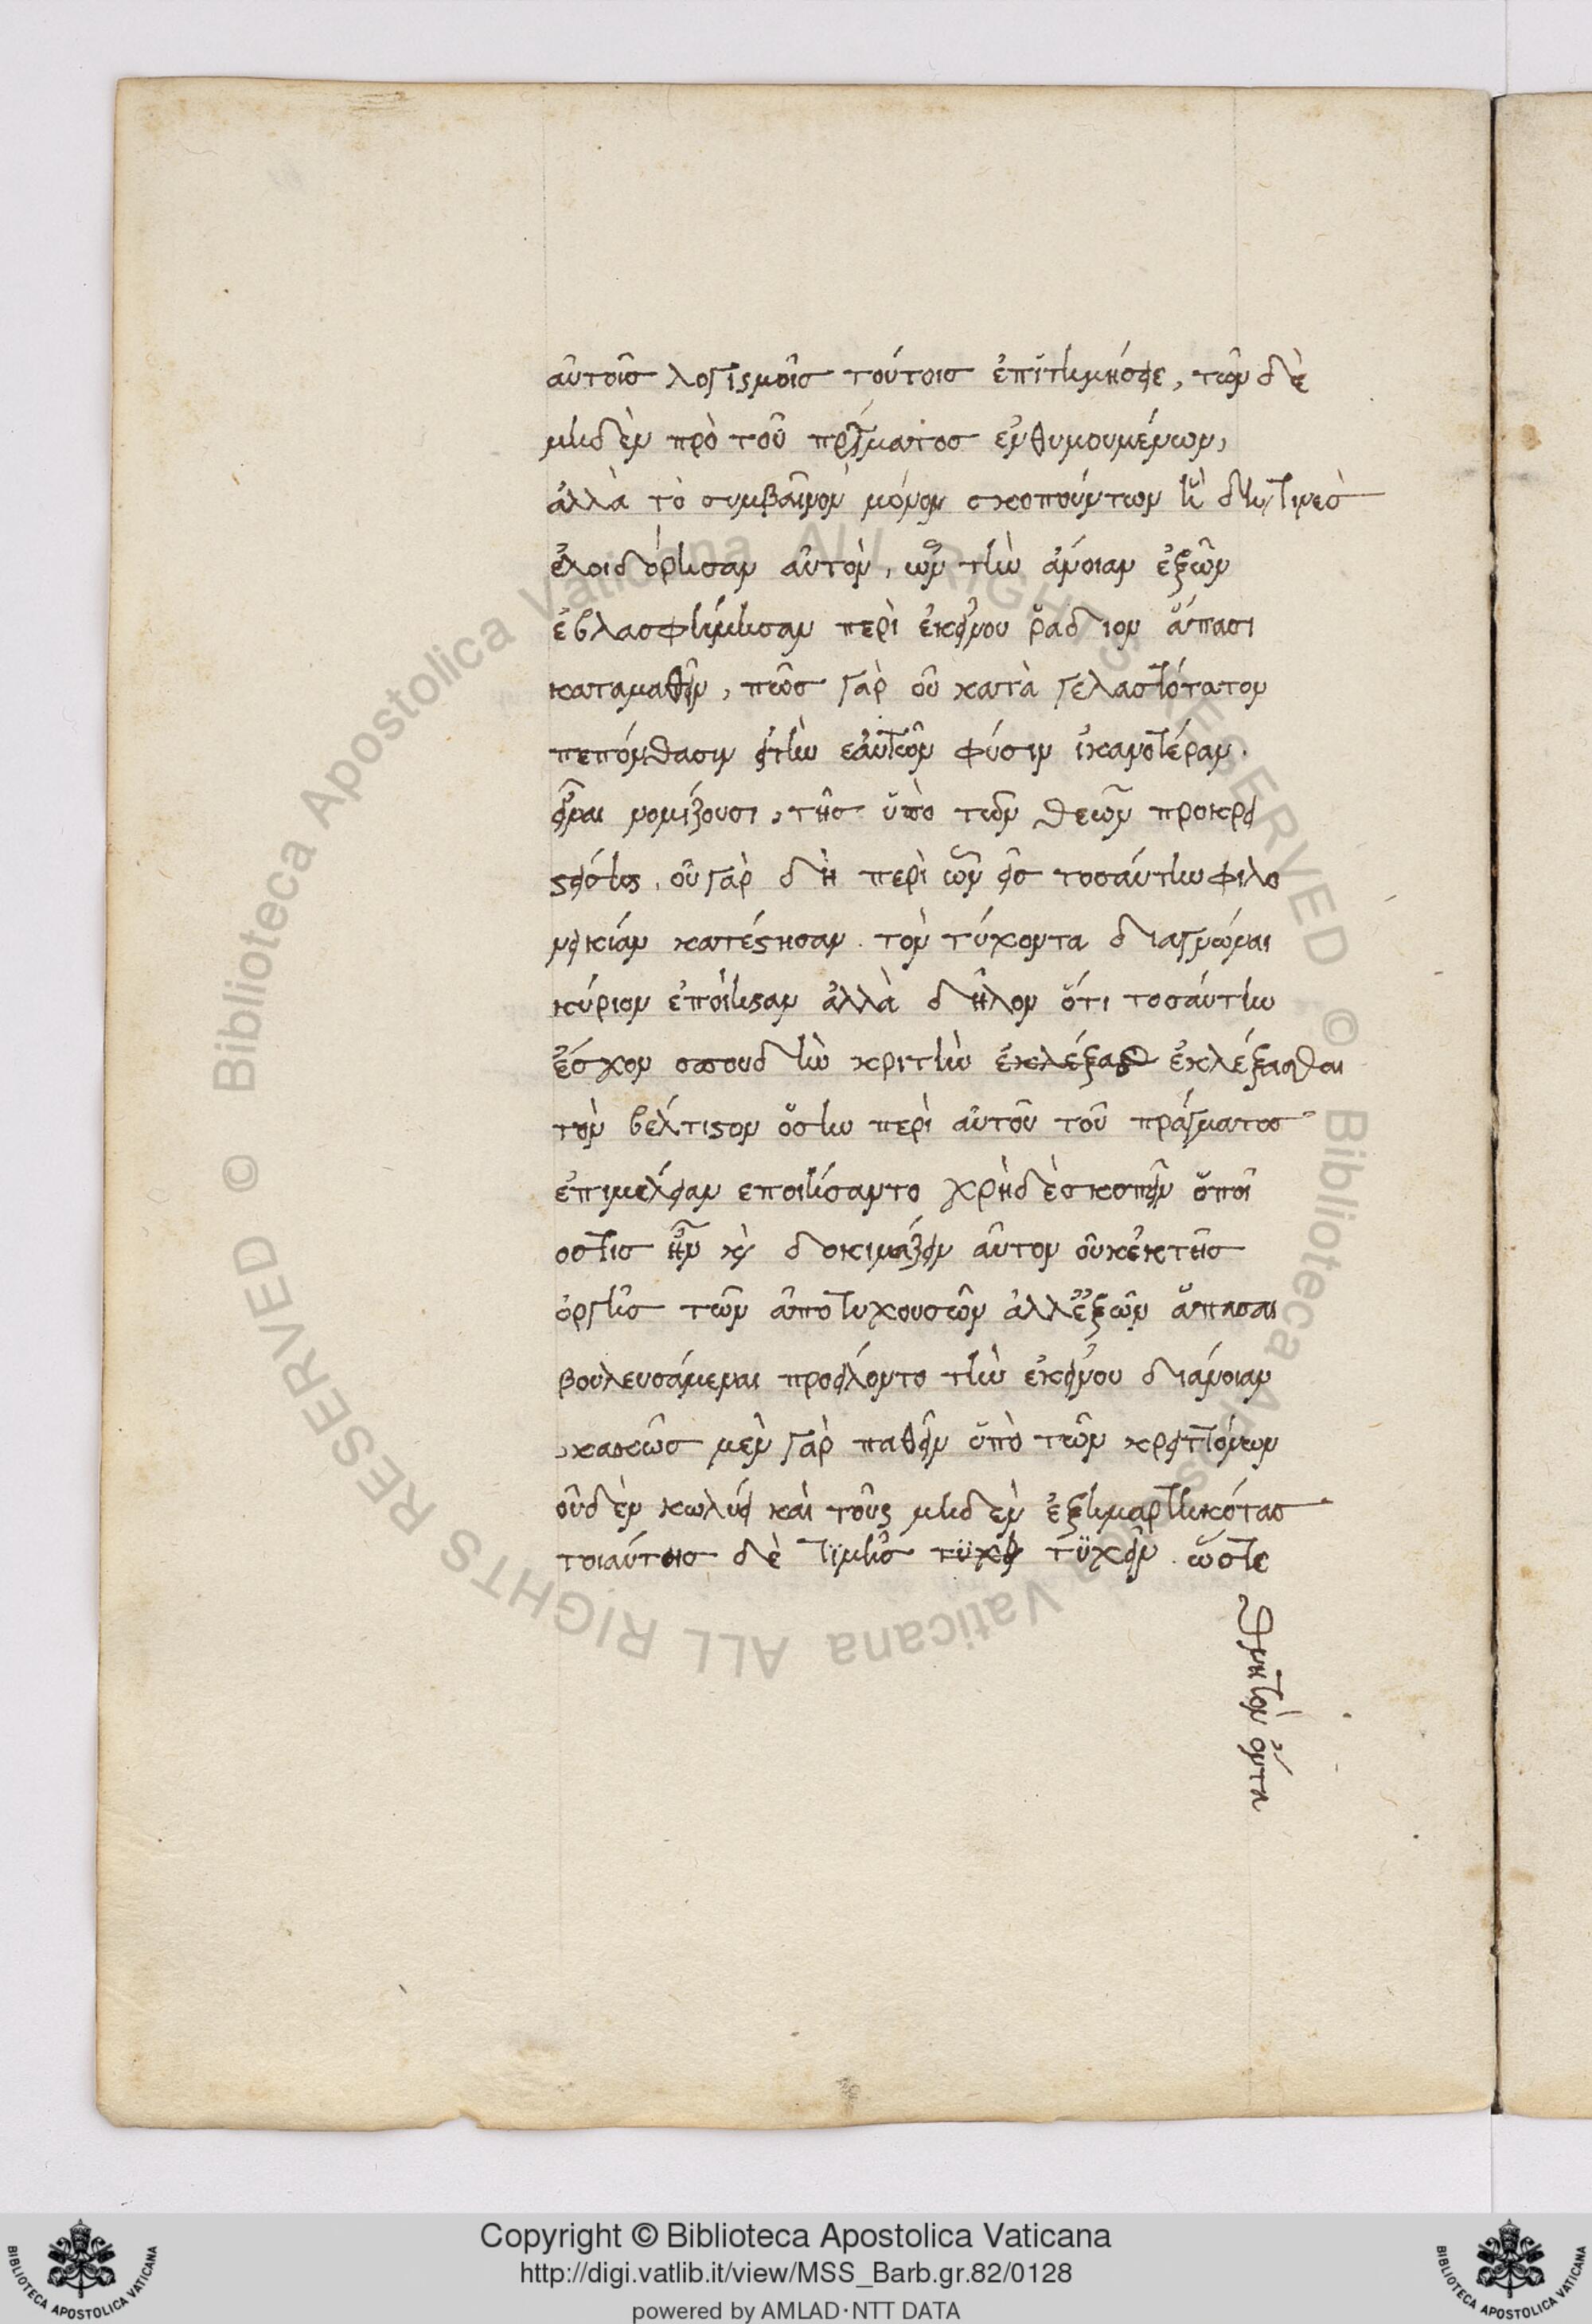 αὐτοῖς λογισμοῖς τούτοις ἐπιτιμήσειε, τῶν δὲ
μηδὲν πρὸ τοῦ πράγματος ἐνθυμουμένων,
ἀλλὰ τὸ συμβαῖνον μόνον σκοπούντων ἢ δή τινες
ἐλοιδόρησαν αὐτὸν, ὧν τὴν ἄνοιαν ἐξ ὧν
ἐβλασφήμησαν περὶ ἐκείνου ῥάδιον ἅπασι
καταμαθεῖν, πῶς γὰρ οὐ καταγελαστότατον
πεπόνθασιν εἰ τὴν ἑαυτῶν φύσιν ἱκανοτέραν
εἶναι νομίζουσι, τῆς ὑπὸ τῶν θεῶν προκρι
θείσης. οὐ γὰρ δὴ περὶ ὧν εἰς τοσαύτην φιλο
νεικίαν κατέστησαν. τὸν τύχοντα διαγνῶναι
κύριον ἐποίησαν ἀλλὰ δῆλον ὅτι τοσαύτην
ἔσχον σπουδὴν κριτὴν ἐκλέξασθ ἐκλέξασθαι
τὸν βέλτιστον ὅσην περὶ αὐτοῦ τοῦ πράγματος
ἐπιμέλειαν εποιήσαντο χρὴ δὲ σκοπεῖν ὁποῖ
οστις ἦν καὶ δοκιμάζειν αὐτον οὐκ ἐκ τῆς
ὀργῆς τῶν ἀποτυχουσῶν ἀλλ ἐξ ὧν ἅπασαι
βουλευσάμεναι προείλοντο τὴν ἐκείνου διάνοιαν
κακῶς μὲν γὰρ παθεῖν ὑπὸ τῶν κρειττόνων
οὐδὲν κωλύει καὶ τοὺς μηδὲν ἐξημαρτηκότας
τοιαύτοις δὲ τιμῆς τυχεῖ τυχεῖν. ὥστε
θνητὸν ὄντα
Copyright © Biblioteca Apostolica Vaticana
http://digi.vatlib.it/view/MSS_Barb.gr.82/0128
powered by AMLAD·NTT DATA